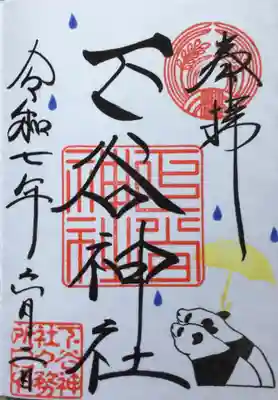 奉拝
下谷神社
下谷
神社
令和七年六月
下谷神
社社務